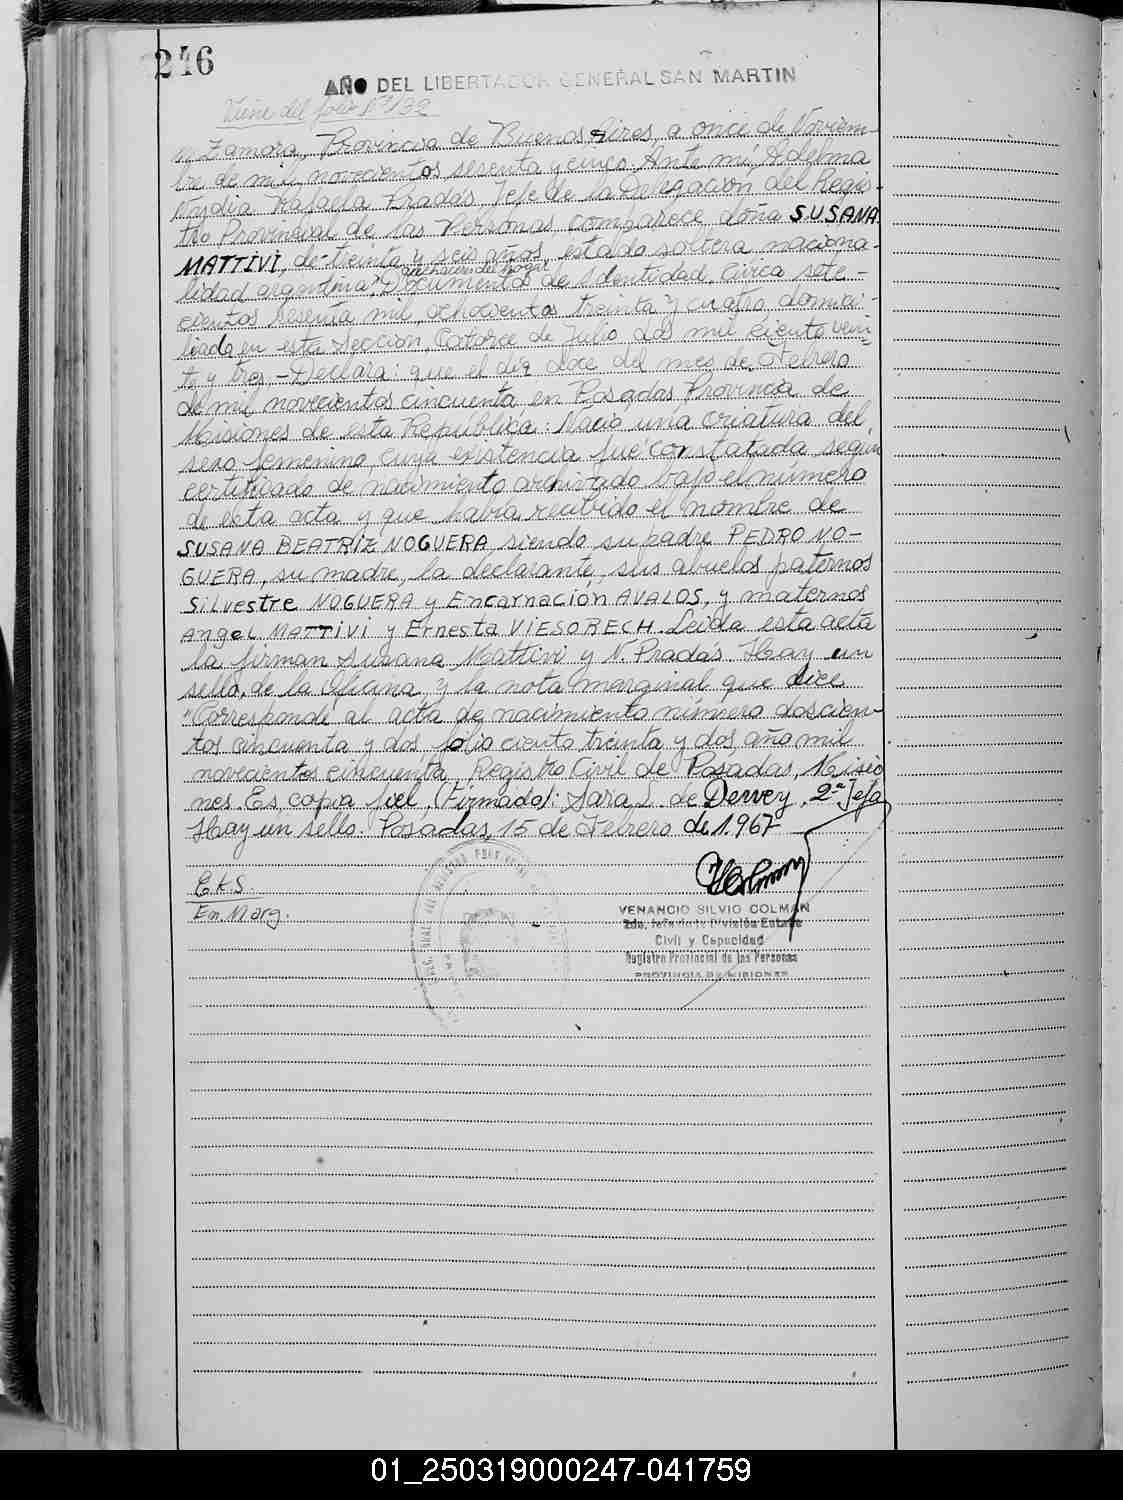 246
AÑO DEL LIBERTADOR GENERAL SAN MARTIN
Viene del folio Nº 132
Zamora, Provincia de Buenos Aires, a once de Noviem-
bre de mil novecientos sesenta y cinco. Ante mí, Adelma
Nydia Rafaela Pradas Jefe de la Delegación del Regis-
tro Provincial de las Personas, comparece doña SUSANA
MATTIVI, de treinta y seis años, estado soltera naciona-
quehaceres del hogar
lidad argentina, Documentos de Identidad, Cívica sete-
cientos sesenta mil, ochocientos treinta y cuatro, domici-
liada en esta Sección, Catorce de Julio dos mil ciento vein-
te y tres, -Declara: que el día doce del mes de Febrero
de mil novecientos cincuenta en Posadas Provincia de
Misiones de esta República: Nació una criatura del
sexo femenino, cuya existencia fué constatada según
certificado de nacimiento archivado bajo el número
de esta acta y que había recibido el nombre de
SUSANA BEATRIZ NOGUERA siendo su padre PEDRO NO-
GUERA, su madre, la declarante, sus abuelos paternos
Silvestre NOGUERA y Encarnación AVALOS, y maternos
Angel MATTIVI y Ernesta VIESORECH. Leída esta acta
la firman Susana Mattivi y N. Pradas. Hay un
sello de la Oficina y la nota marginal que dice
"Corresponde al acta de nacimiento número doscien-
tos cincuenta y dos folio ciento treinta y dos año mil
novecientos cincuenta, Registro Civil de Posadas, Misio
nes. Es copia fiel. (Firmado): Sara L. de Dervey. 2ª Jefa
Hay un sello. Posadas, 15 de Febrero de 1.967
E.K.S.
Em. Marg.
VENANCIO SILVIO COLMAN
2do. Jefe de la División Estado
Civil y Capacidad
Registro Provincial de las Personas
PROVINCIA DE MISIONES
01_250319000247-041759